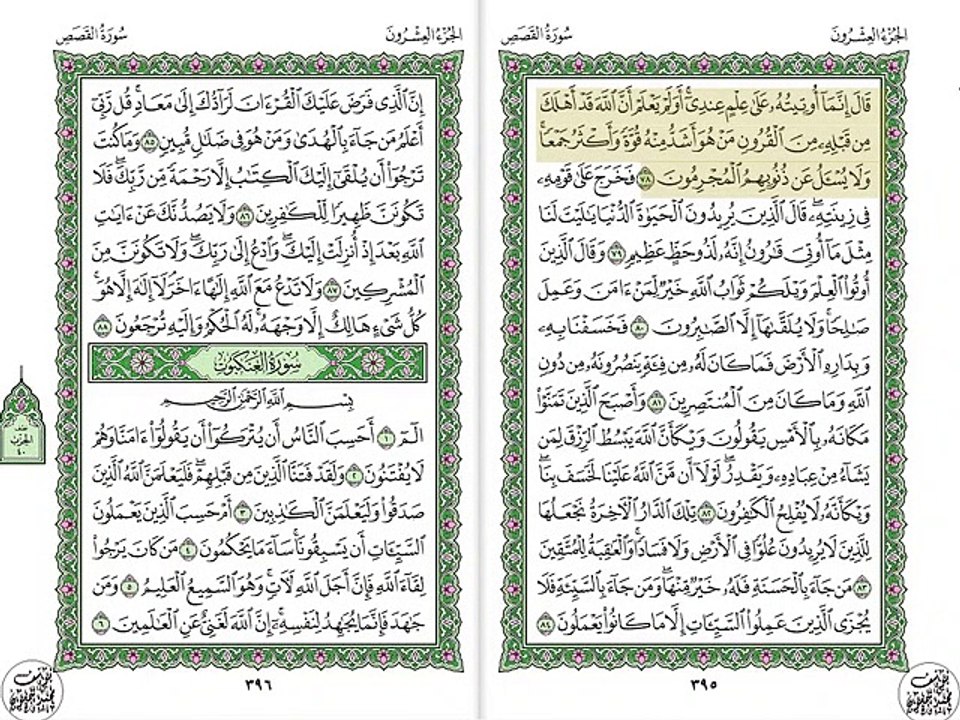 الجزء العشرون
سورة القصص
قَالَ إِنَّمَا أُوتِيتُهُۥ عَلَىٰ عِلْمٍ عِندِىٓ ۚ أَوَلَمْ يَعْلَمْ أَنَّ ٱللَّهَ قَدْ أَهْلَكَ
مِن قَبْلِهِۦ مِنَ ٱلْقُرُونِ مَنْ هُوَ أَشَدُّ مِنْهُ قُوَّةً وَأَكْثَرُ جَمْعًا ۚ
وَلَا يُسْـَٔلُ عَن ذُنُوبِهِمُ ٱلْمُجْرِمُونَ ٧٨ فَخَرَجَ عَلَىٰ قَوْمِهِۦ
فِى زِينَتِهِۦ ۖ قَالَ ٱلَّذِينَ يُرِيدُونَ ٱلْحَيَوٰةَ ٱلدُّنْيَا يَـٰلَيْتَ لَنَا
مِثْلَ مَآ أُوتِىَ قَـٰرُونُ إِنَّهُۥ لَذُو حَظٍّ عَظِيمٍ ٧٩ وَقَالَ ٱلَّذِينَ
أُوتُوا۟ ٱلْعِلْمَ وَيْلَكُمْ ثَوَابُ ٱللَّهِ خَيْرٌ لِّمَنْ ءَامَنَ وَعَمِلَ
صَـٰلِحًا وَلَا يُلَقَّىٰهَآ إِلَّا ٱلصَّـٰبِرُونَ ٨٠ فَخَسَفْنَا بِهِۦ
وَبِدَارِهِ ٱلْأَرْضَ فَمَا كَانَ لَهُۥ مِن فِئَةٍ يَنصُرُونَهُۥ مِن دُونِ
ٱللَّهِ وَمَا كَانَ مِنَ ٱلْمُنتَصِرِينَ ٨١ وَأَصْبَحَ ٱلَّذِينَ تَمَنَّوْا۟
مَكَانَهُۥ بِٱلْأَمْسِ يَقُولُونَ وَيْكَأَنَّ ٱللَّهَ يَبْسُطُ ٱلرِّزْقَ لِمَن
يَشَآءُ مِنْ عِبَادِهِۦ وَيَقْدِرُ ۖ لَوْلَآ أَن مَّنَّ ٱللَّهُ عَلَيْنَا لَخَسَفَ بِنَا ۖ
وَيْكَأَنَّهُۥ لَا يُفْلِحُ ٱلْكَـٰفِرُونَ ٨٢ تِلْكَ ٱلدَّارُ ٱلْـَٔاخِرَةُ نَجْعَلُهَا
لِلَّذِينَ لَا يُرِيدُونَ عُلُوًّا فِى ٱلْأَرْضِ وَلَا فَسَادًا ۚ وَٱلْعَـٰقِبَةُ لِلْمُتَّقِينَ
٨٣ مَن جَآءَ بِٱلْحَسَنَةِ فَلَهُۥ خَيْرٌ مِّنْهَا ۖ وَمَن جَآءَ بِٱلسَّيِّئَةِ فَلَا
يُجْزَى ٱلَّذِينَ عَمِلُوا۟ ٱلسَّيِّـَٔاتِ إِلَّا مَا كَانُوا۟ يَعْمَلُونَ ٨٤
٣٩٥
الجزء العشرون
سورة القصص
إِنَّ ٱلَّذِى فَرَضَ عَلَيْكَ ٱلْقُرْءَانَ لَرَآدُّكَ إِلَىٰ مَعَادٍ ۚ قُل رَّبِّىٓ
أَعْلَمُ مَن جَآءَ بِٱلْهُدَىٰ وَمَنْ هُوَ فِى ضَلَـٰلٍ مُّبِينٍ ٨٥ وَمَا كُنتَ
تَرْجُوٓا۟ أَن يُلْقَىٰٓ إِلَيْكَ ٱلْكِتَـٰبُ إِلَّا رَحْمَةً مِّن رَّبِّكَ ۖ فَلَا
تَكُونَنَّ ظَهِيرًا لِّلْكَـٰفِرِينَ ٨٦ وَلَا يَصُدُّنَّكَ عَنْ ءَايَـٰتِ
ٱللَّهِ بَعْدَ إِذْ أُنزِلَتْ إِلَيْكَ ۖ وَٱدْعُ إِلَىٰ رَبِّكَ ۖ وَلَا تَكُونَنَّ مِنَ
ٱلْمُشْرِكِينَ ٨٧ وَلَا تَدْعُ مَعَ ٱللَّهِ إِلَـٰهًا ءَاخَرَ ۘ لَآ إِلَـٰهَ إِلَّا هُوَ ۚ
كُلُّ شَىْءٍ هَالِكٌ إِلَّا وَجْهَهُۥ ۚ لَهُ ٱلْحُكْمُ وَإِلَيْهِ تُرْجَعُونَ ٨٨
سورة العنكبوت
بِسْمِ ٱللَّهِ ٱلرَّحْمَـٰنِ ٱلرَّحِيمِ
الٓمٓ ١ أَحَسِبَ ٱلنَّاسُ أَن يُتْرَكُوٓا۟ أَن يَقُولُوٓا۟ ءَامَنَّا وَهُمْ
لَا يُفْتَنُونَ ٢ وَلَقَدْ فَتَنَّا ٱلَّذِينَ مِن قَبْلِهِمْ ۖ فَلَيَعْلَمَنَّ ٱللَّهُ ٱلَّذِينَ
صَدَقُوا۟ وَلَيَعْلَمَنَّ ٱلْكَـٰذِبِينَ ٣ أَمْ حَسِبَ ٱلَّذِينَ يَعْمَلُونَ
ٱلسَّيِّـَٔاتِ أَن يَسْبِقُونَا ۚ سَآءَ مَا يَحْكُمُونَ ٤ مَن كَانَ يَرْجُوا۟
لِقَآءَ ٱللَّهِ فَإِنَّ أَجَلَ ٱللَّهِ لَـَٔاتٍ ۚ وَهُوَ ٱلسَّمِيعُ ٱلْعَلِيمُ ٥ وَمَن
جَـٰهَدَ فَإِنَّمَا يُجَـٰهِدُ لِنَفْسِهِۦٓ ۚ إِنَّ ٱللَّهَ لَغَنِىٌّ عَنِ ٱلْعَـٰلَمِينَ ٦
نصف
الحزب
٤٠
٣٩٦